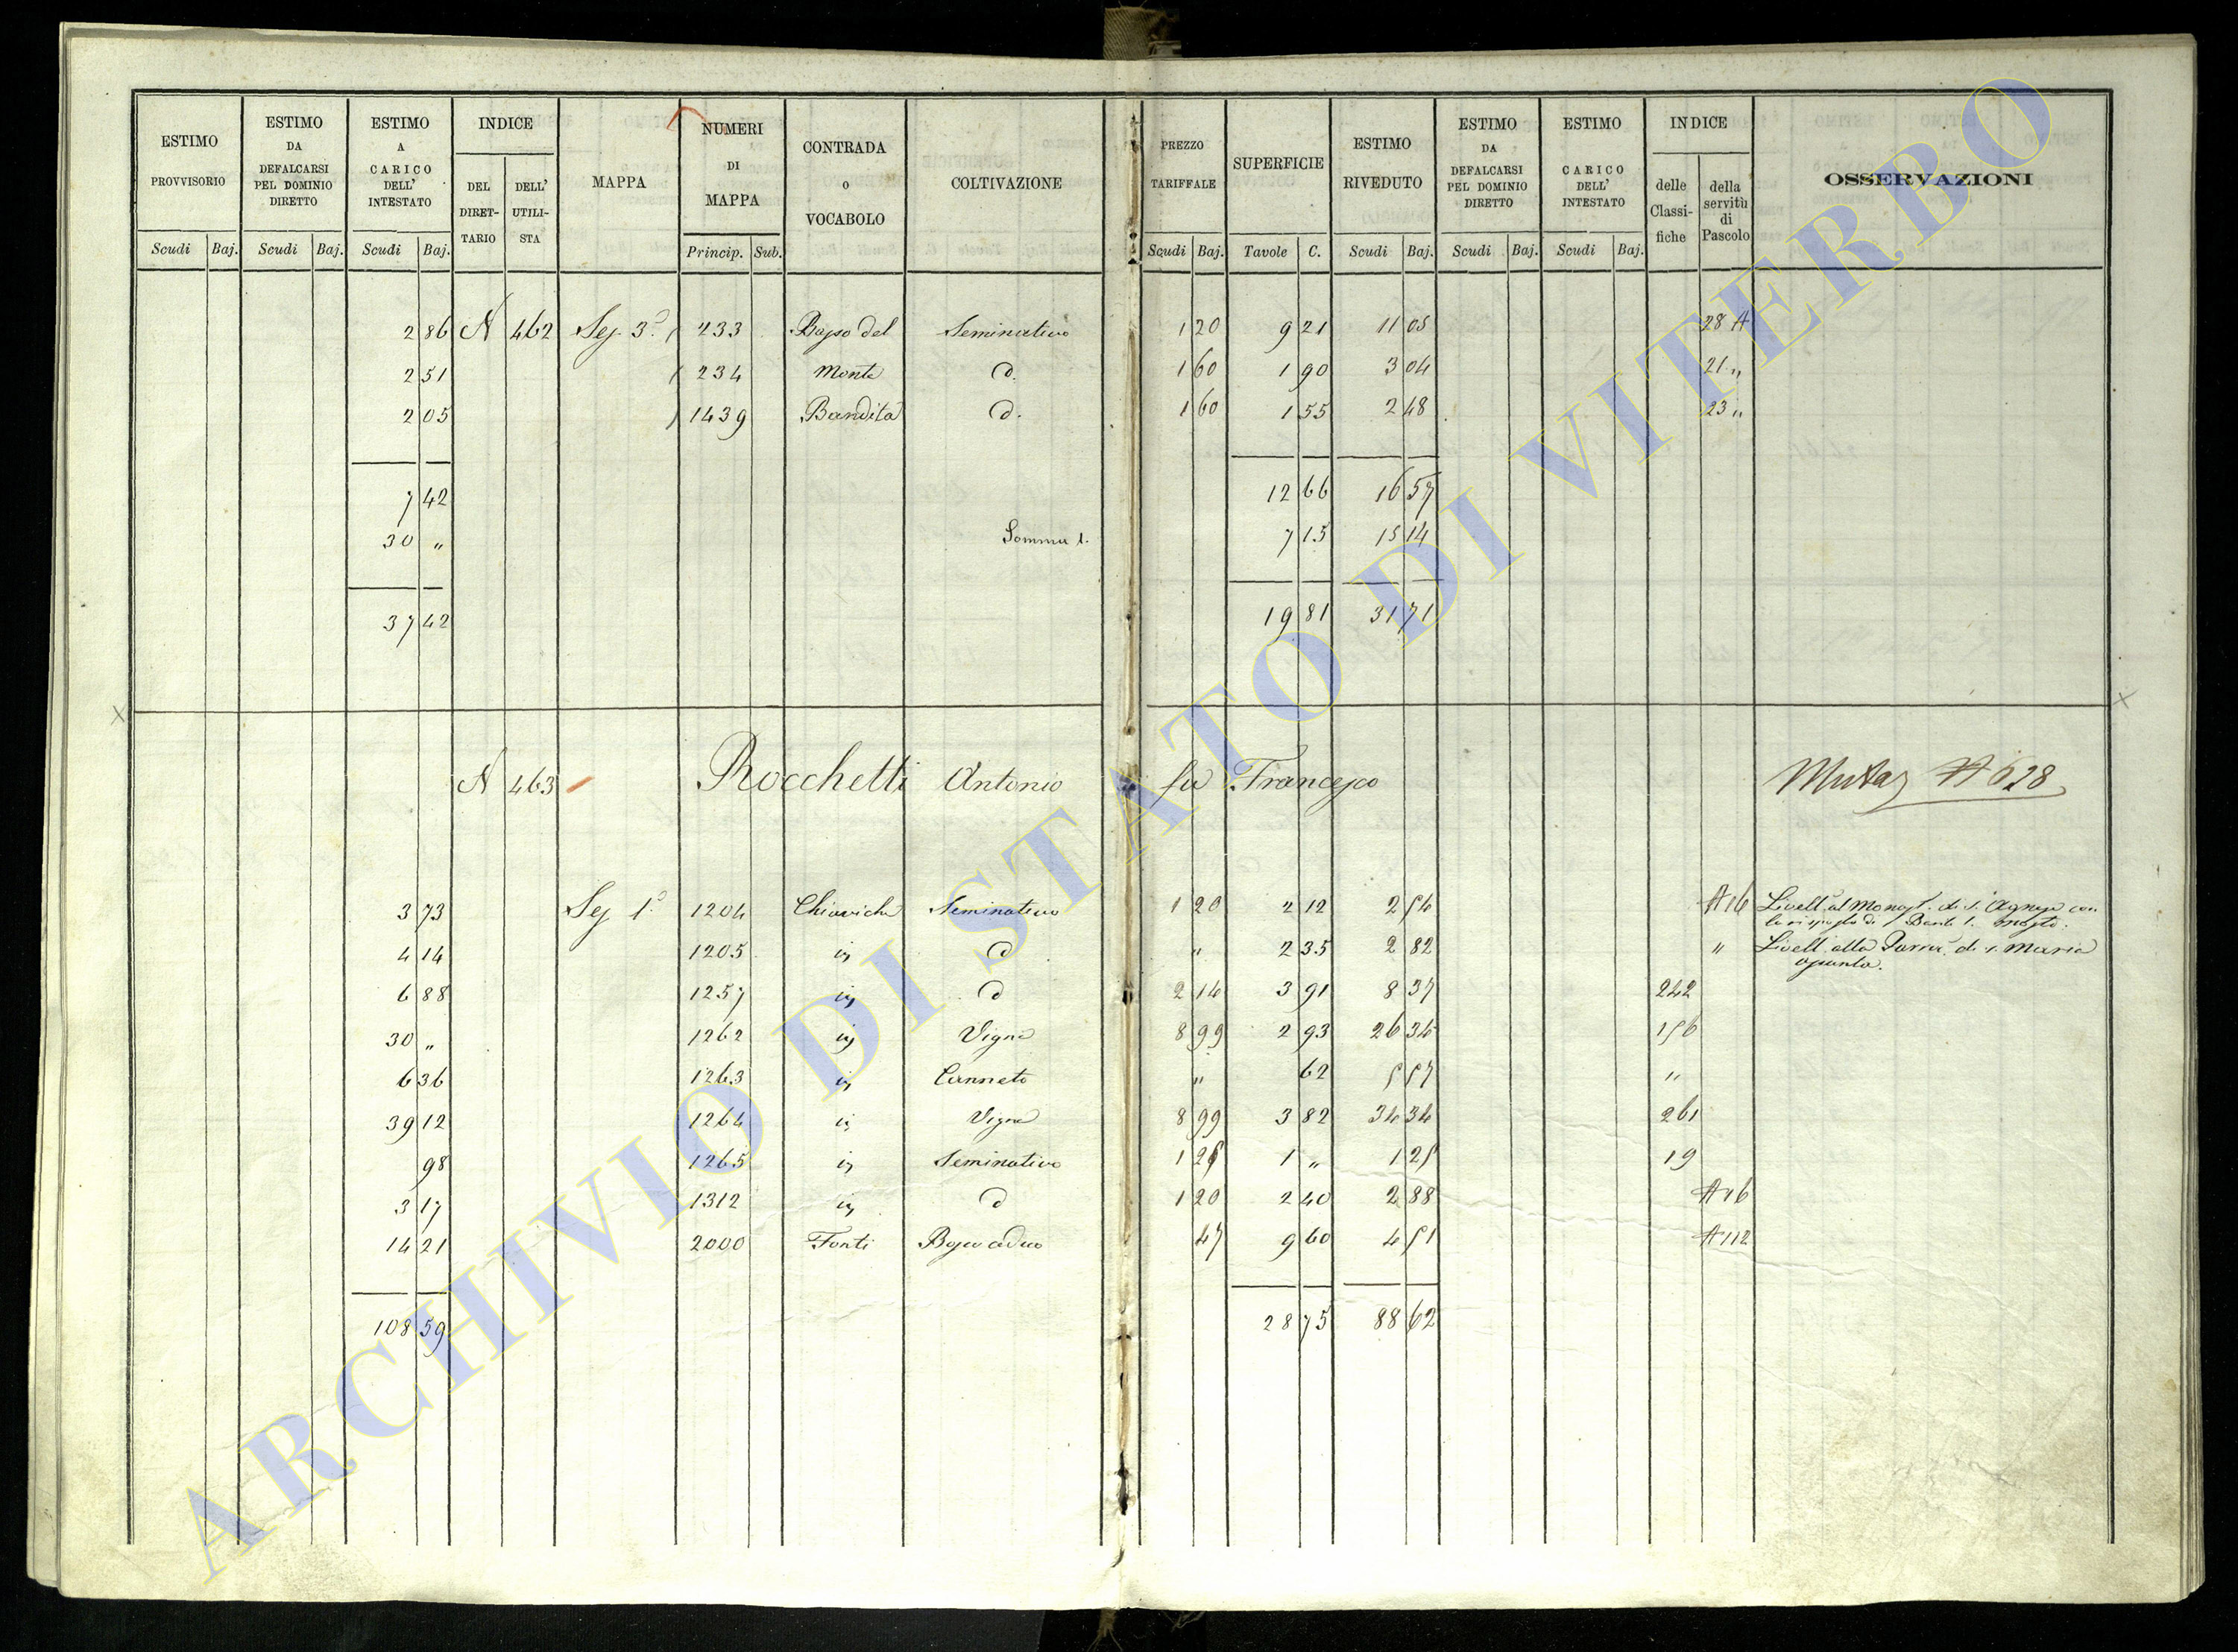 ESTIMO PROVVISORIO | ESTIMO DA DEFALCARSI PEL DOMINIO DIRETTO | ESTIMO A CARICO DELL' INTESTATO | INDICE DEL DIRETTARIO | DELL' UTILISTA | MAPPA | NUMERI DI MAPPA | CONTRADA O VOCABOLO | COLTIVAZIONE | PREZZO TARIFFALE | SUPERFICIE | ESTIMO RIVEDUTO | ESTIMO DA DEFALCARSI PEL DOMINIO DIRETTO | ESTIMO CARICO DELL' INTESTATO | INDICE delle Classifiche | della servitù di Pascolo | OSSERVAZIONI
Scudi | Baj. | Scudi | Baj. | Scudi | Baj. | Princip. | Sub. | Scudi | Baj. | Tavole | C. | Scudi | Baj. | Scudi | Baj. | Scudi | Baj.
2 86 | N 462 | Seg. 3ª | 233 | del | Seminativo | 1 20 | 9 21 | 11 05 | 28 A
2 51 | 234 | Monte | d. | 1 60 | 1 90 | 3 04 | 21 „
2 05 | 1439 | Bandita | d. | 1 60 | 1 55 | 2 48 | 23 „
7 42 | 12 66 | 16 57
30 „ | Somma | 7 15 | 15 14
37 42 | 19 81 | 31 71
N 463 | Rocchetti Antonio fu Francesco | 628
3 73 | Seg 1ª | 1204 | Chiaviche | Seminativo | 1 20 | 2 12 | 2 54 | A 16 | Livell. al Monast. di S. Agnese con
la
4 14 | 1205 | in | d | „ | 2 35 | 2 82 | „ | Livell. alla di S. Maria
assunta.
6 88 | 1257 | in | d | 2 14 | 3 91 | 8 37 | 242
30 „ | 1262 | in | Vigna | 8 99 | 2 93 | 26 34 | 156
6 36 | 1263 | in | Canneto | „ | 62 | 5 57 | „
39 12 | 1264 | in | Vigna | 8 99 | 3 82 | 34 34 | 261
98 | 1265 | in | Seminativo | 1 25 | 1 „ | 1 25 | 19
3 17 | 1312 | in | d | 1 20 | 2 40 | 2 88 | A 16
14 21 | 2000 | Fonti | Bosco ceduo | 47 | 9 60 | 4 51 | A 112
108 59 | 28 75 | 88 62
ARCHIVIO DI STATO DI VITERBO